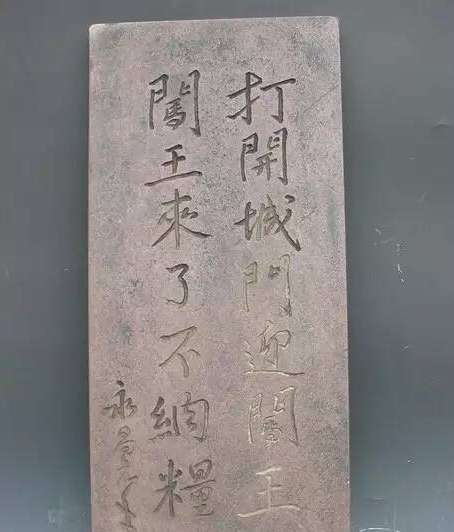 打開城門迎闖王
闖王來了不納糧
永昌